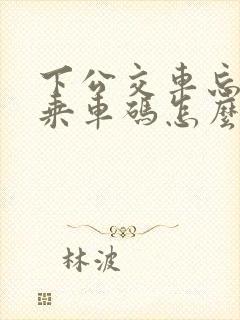 下公交車忘
乘車碼怎麼
林波